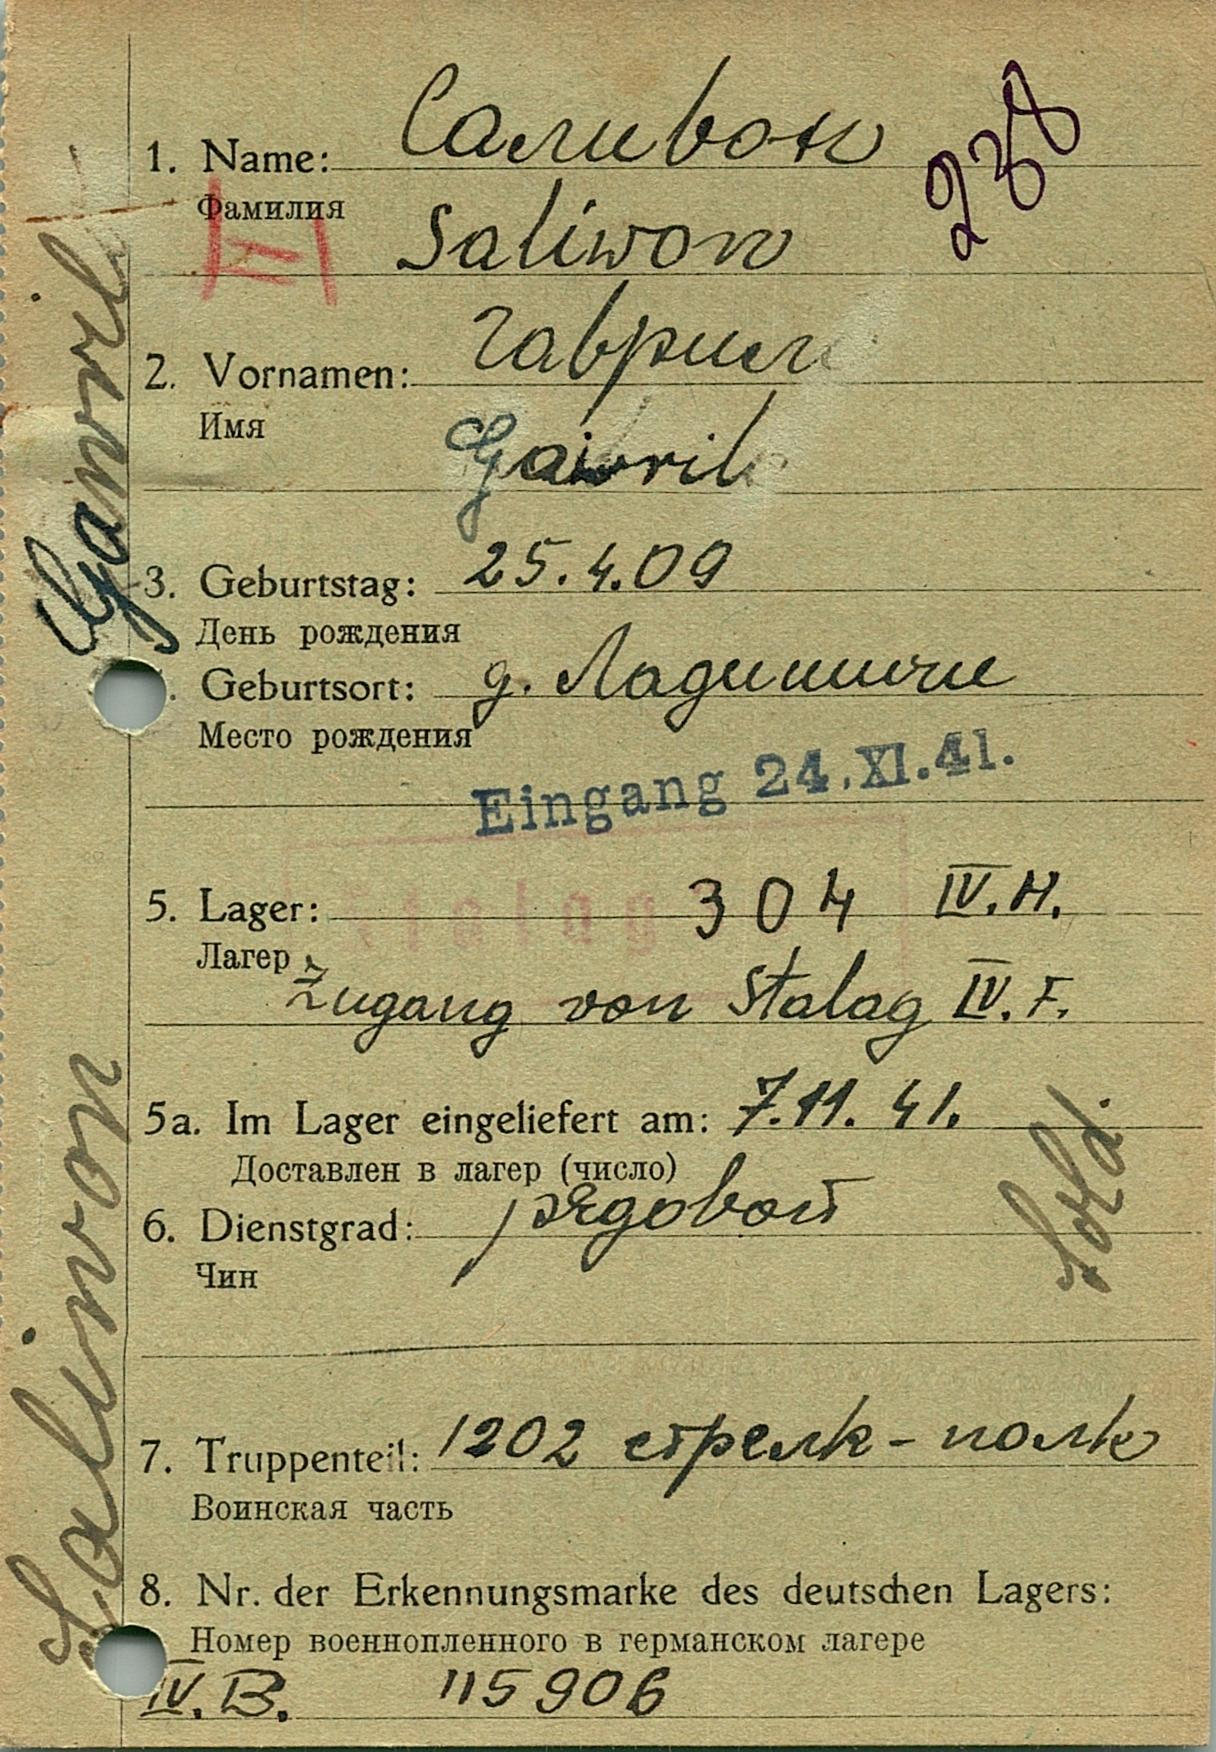 Саливон
1. Name:
Фамилия
Saliwon
238
Гавриил
2. Vornamen:
Имя
Gawril
3. Geburtstag: 25.4.09
День рождения
Geburtsort: д. Ладишичи
Место рождения
Eingang 24.XI.41.
5. Lager: 304 IV.H.
Лагер
Stalag
Zugang von Stalag IV.F.
5a. Im Lager eingeliefert am: 7.11.41.
Доставлен в лагер (число)
6. Dienstgrad: рядовой
Чин
Sold.
7. Truppenteil: 1202 стрелк-полк
Воинская часть
8. Nr. der Erkennungsmarke des deutschen Lagers:
Номер военнопленного в германском лагере
IV.B. 115906
Saliwon Gawril